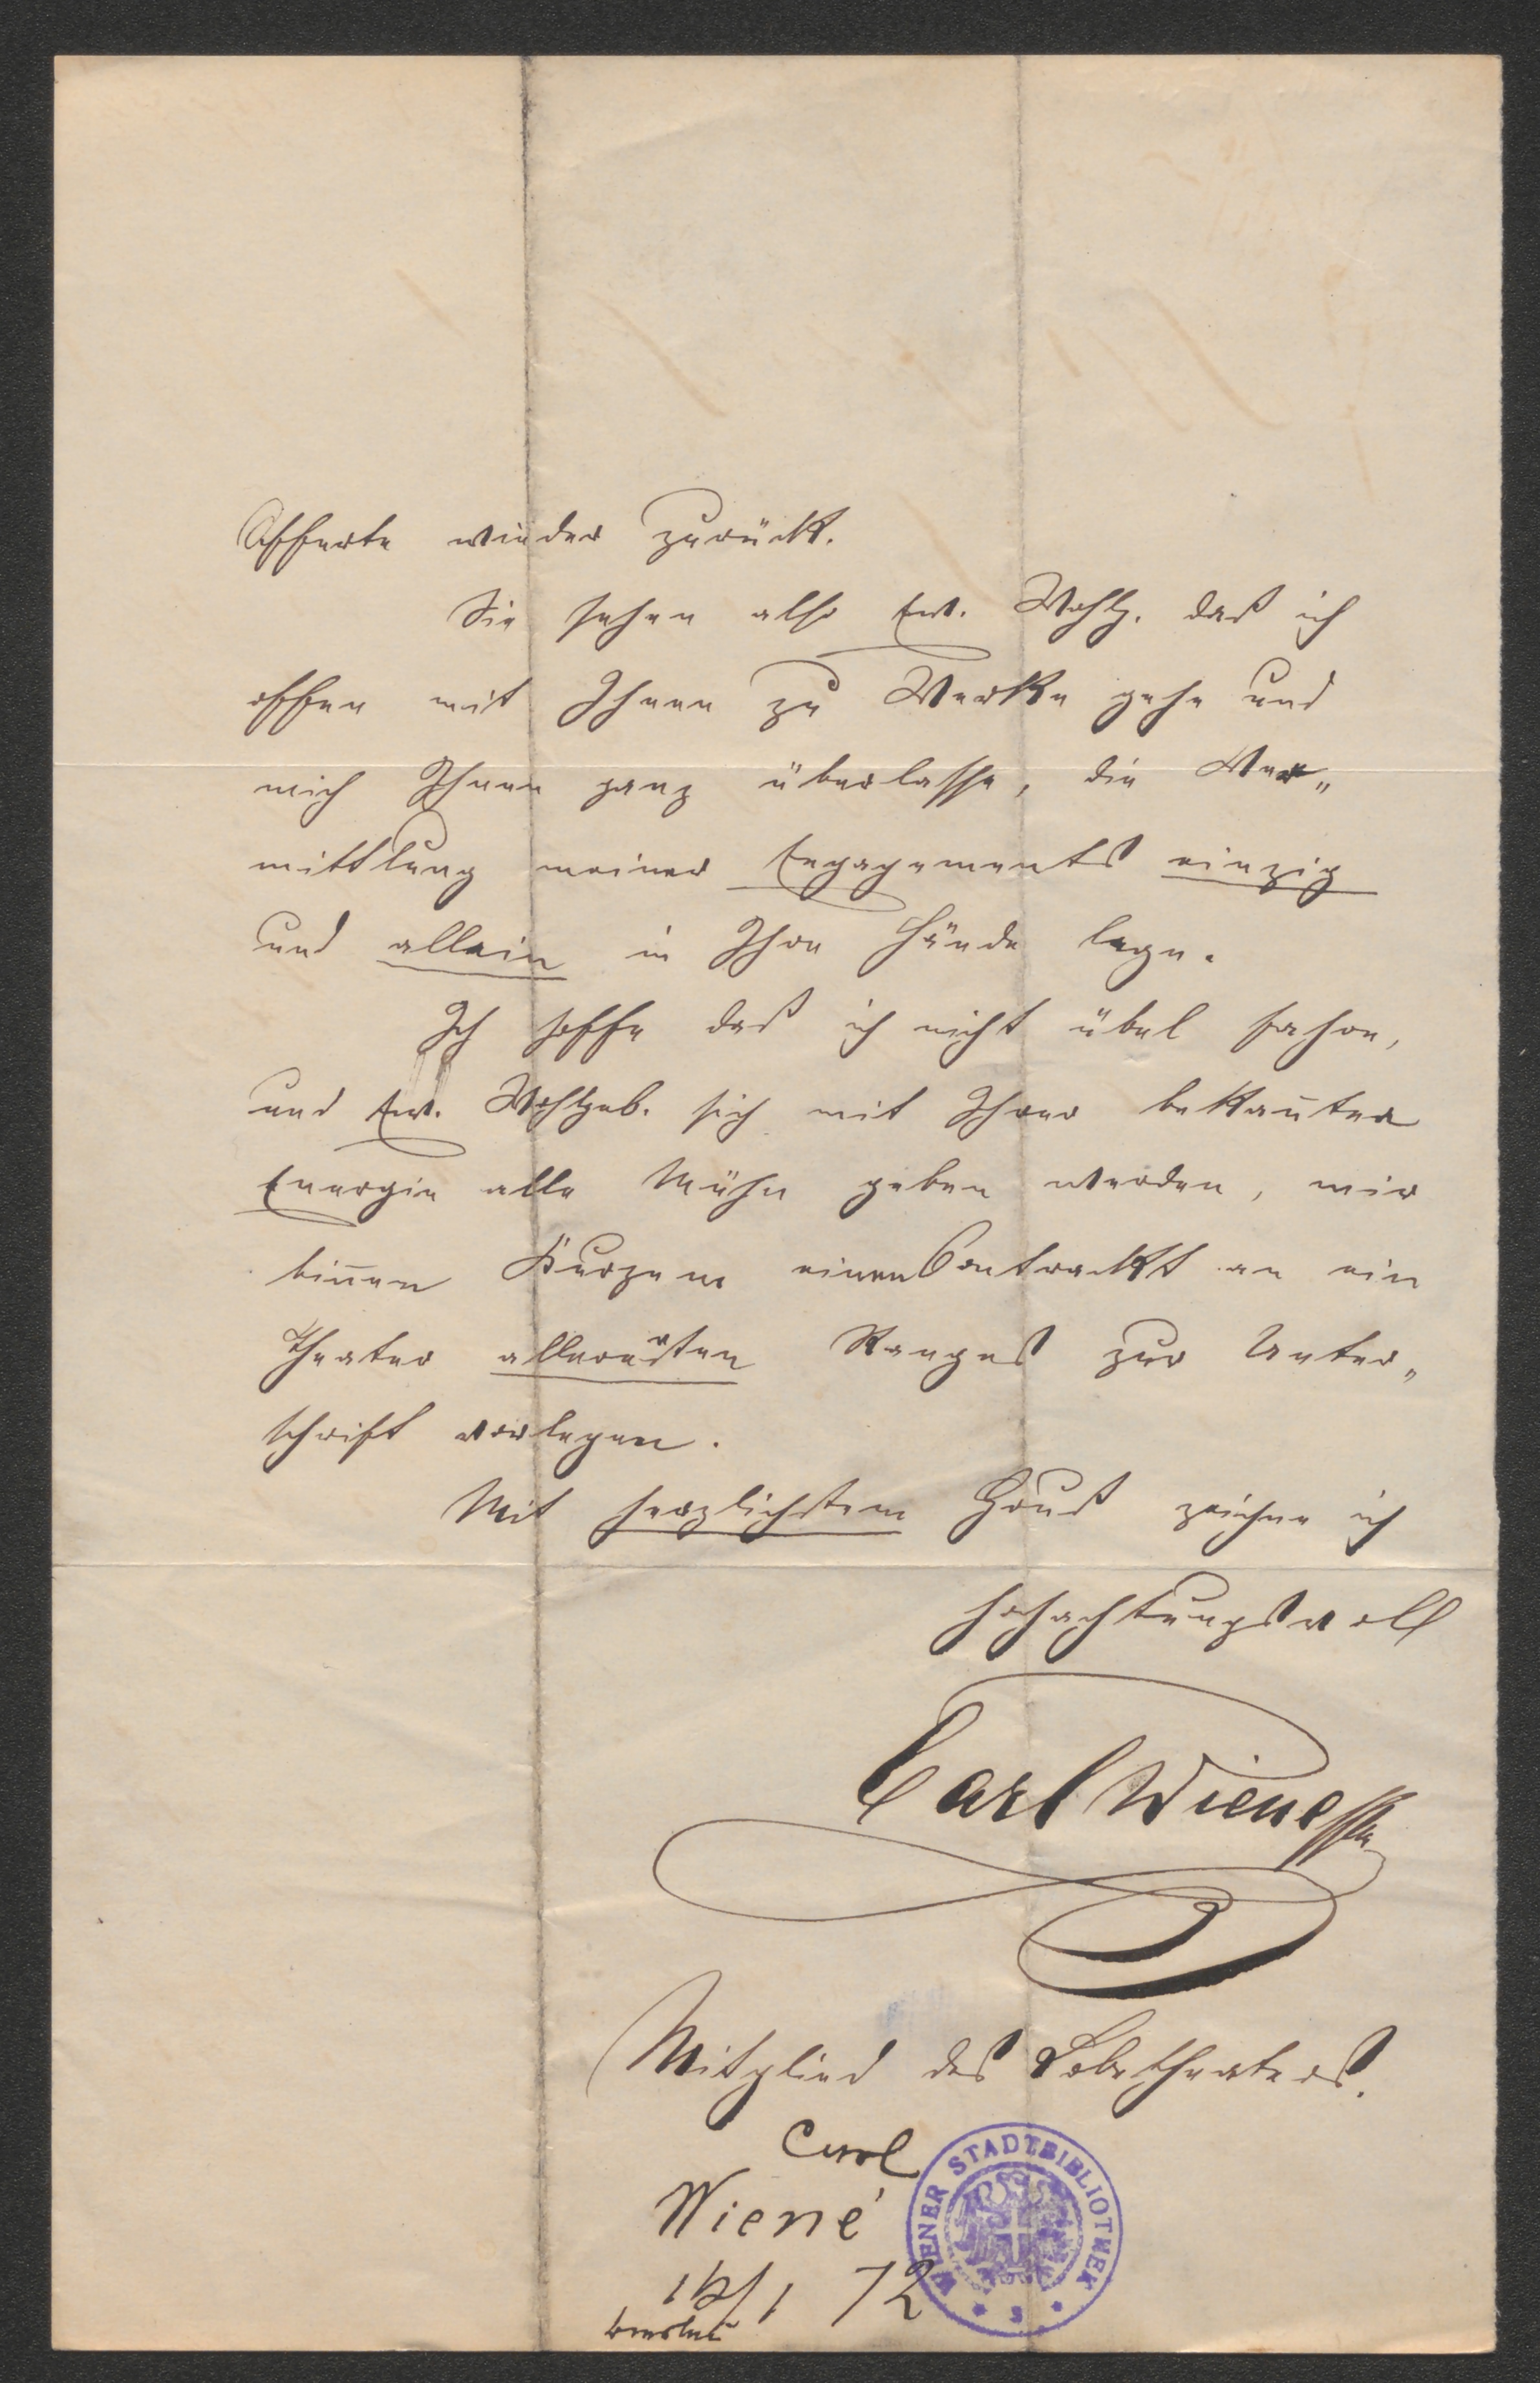 Offerte wieder zurück.
Sie sehen also Ew. Wohlg. daß ich
offen mit Ihnen zu Werke gehe und
mich Ihnen ganz überlasse, die Ver„
mittlung meiner Engagements einzig
und allein in Ihre Hände lege.
Ich hoffe daß ich nicht übel fahre,
und Ew. Wohlgeb. sich mit Ihrer bekan̄ten
Energie alle Mühe geben werden, mir
bin̄en Kurzem einen Contrackt an ein
Theater allerersten Ranges zur Unter„
schrift vorlegen.
Mit herzlichstem Gruß zeichne ich
hochachtungsvoll
Carl Wiene
Mitglied des Lobetheaters.
Carl
Wiené
72
WIENER STADTBIBLIOTHEK